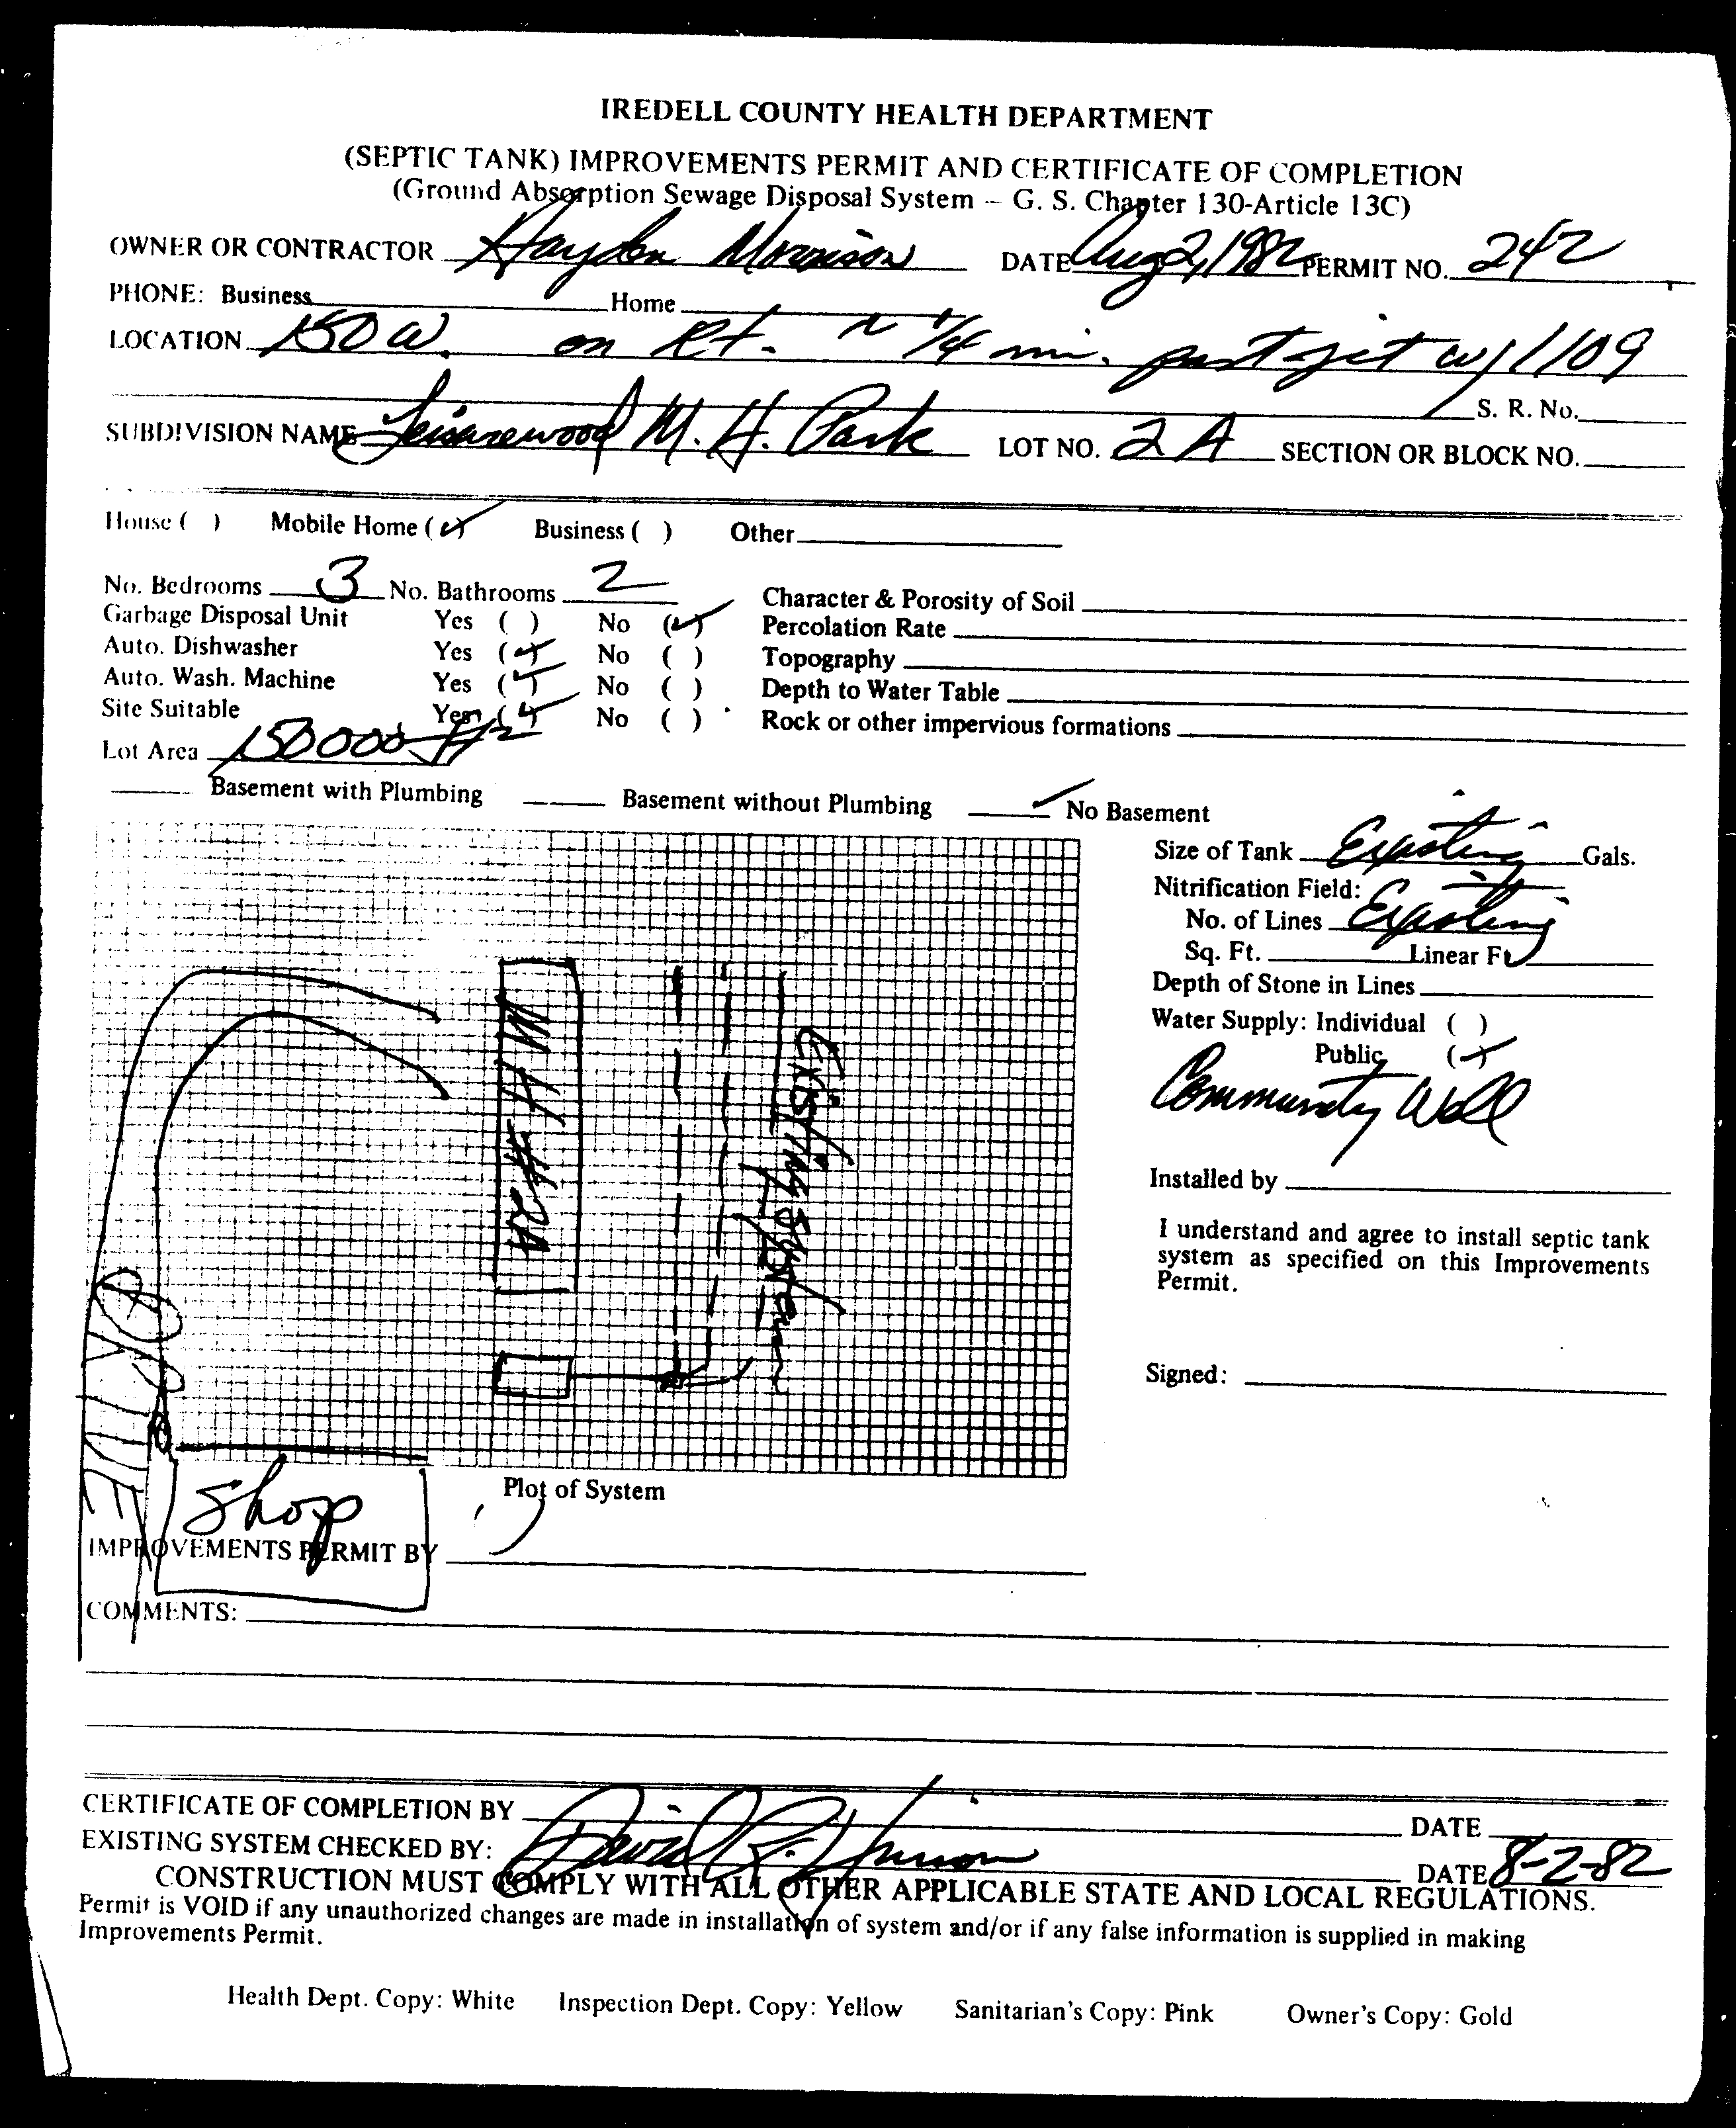 IREDELL COUNTY HEALTH DEPARTMENT
(SEPTIC TANK) IMPROVEMENTS PERMIT AND CERTIFICATE OF COMPLETION
(Ground Absorption Sewage Disposal System – G. S. Chapter 130-Article 13C)
OWNER OR CONTRACTOR Hayden Morrison DATE Aug 2, 1982 PERMIT NO. 242
PHONE: Business Home
LOCATION 150 W. on Rt. ~ 1/4 mi. past jct w/ 1109
S. R. No.
SUBDIVISION NAME Leisurewood M. H. Park LOT NO. 2A SECTION OR BLOCK NO.
House ( ) Mobile Home (✓) Business ( ) Other
No. Bedrooms 3 No. Bathrooms 2 Character & Porosity of Soil
Garbage Disposal Unit Yes ( ) No (✓) Percolation Rate
Auto. Dishwasher Yes (✓) No ( ) Topography
Auto. Wash. Machine Yes (✓) No ( ) Depth to Water Table
Site Suitable Yes (✓) No ( ) Rock or other impervious formations
Lot Area 150000 ft2
Basement with Plumbing Basement without Plumbing ✓ No Basement
Size of Tank Existing Gals.
Nitrification Field:
No. of Lines Existing
Sq. Ft. Linear Ft
Depth of Stone in Lines
Water Supply: Individual ( )
Public (✓)
Community Well
Installed by
I understand and agree to install septic tank
system as specified on this Improvements
Permit.
Signed:
MH #2A
Existing System
DRIVE
Shop
Plot of System
IMPROVEMENTS PERMIT BY
COMMENTS:
CERTIFICATE OF COMPLETION BY DATE
EXISTING SYSTEM CHECKED BY: David R. DATE 8-2-82
CONSTRUCTION MUST COMPLY WITH ALL OTHER APPLICABLE STATE AND LOCAL REGULATIONS.
Permit is VOID if any unauthorized changes are made in installation of system and/or if any false information is supplied in making
Improvements Permit.
Health Dept. Copy: White Inspection Dept. Copy: Yellow Sanitarian's Copy: Pink Owner's Copy: Gold